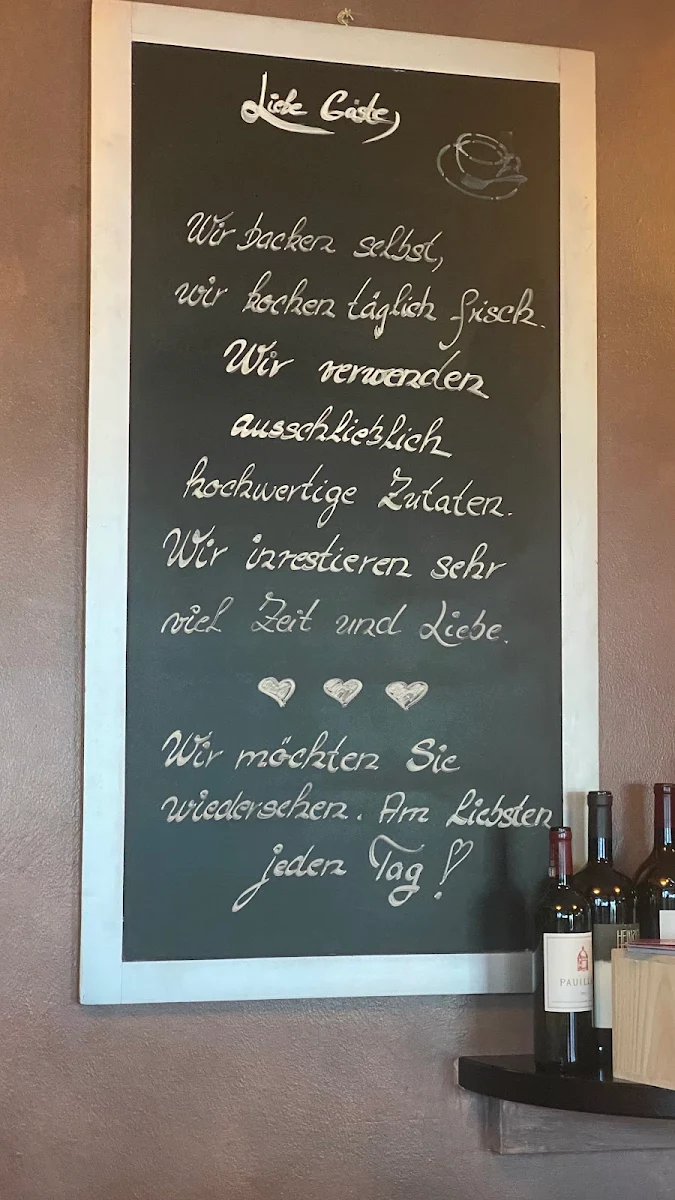 Liebe Gäste,
Wir backen selbst,
wir kochen täglich frisch.
Wir verwenden
ausschließlich
hochwertige Zutaten.
Wir investieren sehr
viel Zeit und Liebe.
Wir möchten Sie
wiedersehen. Am Liebsten
jeden Tag!